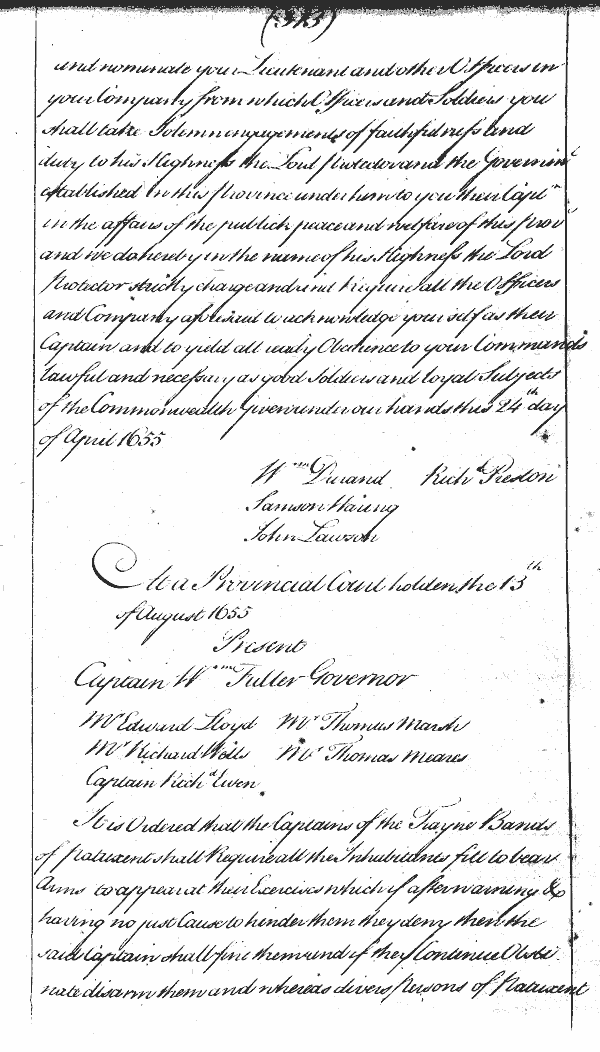 (313)
and nominate your Lieutenant and other Officers in
your Company from which Officers and Soldiers you
shall take Solemn engagements of faithfulness and
duty to his Highness the Lord protector and the Governmt
established in this province under him to you their Captn
in the affairs of the publick peace and welfare of this prov
and we do hereby in the name of his Highness the Lord
Protector strictly charge and and Require all the Officers
and Company aforesaid to acknowledge your self as their
Captain and to yield all ready Obedience to your Commands
lawful and necessary as good Soldiers and loyal Subjects
of the Commonwealth Given under our hands this 24th day
of April 1655
Wm Durand Richd Preston
Samson Waring
John Lawson
At a Provincial Court holden the 13th
of August 1655
Present
Captain Wm Fuller Governor
Mr Edward Lloyd Mr Thomas Marsh
Mr Richard Wells Mr Thomas Meares
Captain Richd Ewen
It is Ordered that the Captains of the Trayne Bands
of patuxent shall Require all the Inhabitants fitt to bear
Arms to appear at their Exercises which if after warning &
having no just Cause to hinder them they deny then the
said Captain shall fine them and if they Continue Obsti
nate disarm them and whereas divers Persons of Patuxent